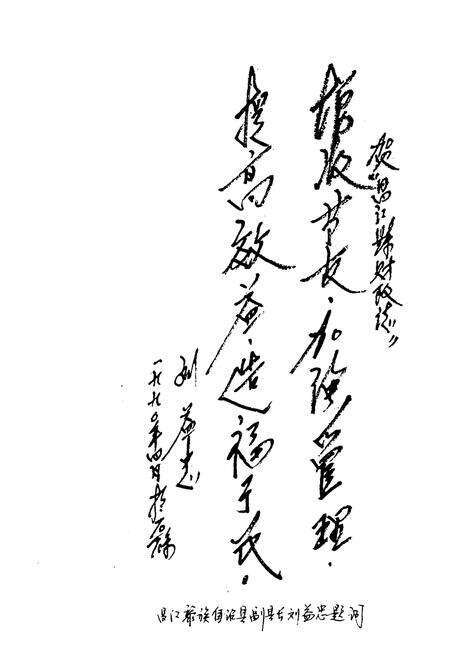 贺"昌江县财政志"
增收节支，加强管理，
提高效益，造福于民。
刘益忠
一九九〇年四月于石碌
昌江黎族自治县副县长刘益忠题词